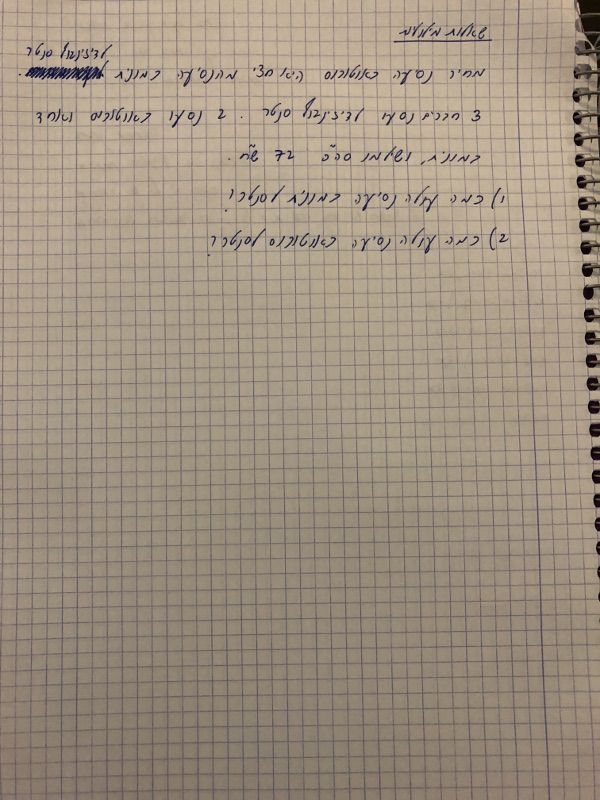 שאלות מילוליות
לדיזינגוף סנטר
מחיר נסיעה באוטובוס היא חצי מהנסיעה במונית
3 חברים נסעו לדיזינגוף סנטר. 2 נסעו באוטובוס ואחד
במונית, ושילמו סה"כ 72 ש"ח.
1) כמה עולה נסיעה במונית לסנטר?
2) כמה עולה נסיעה באוטובוס לסנטר?